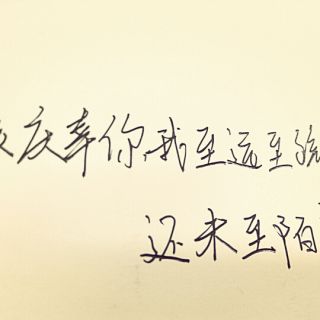 庆幸你我至远至疏
还未至陌